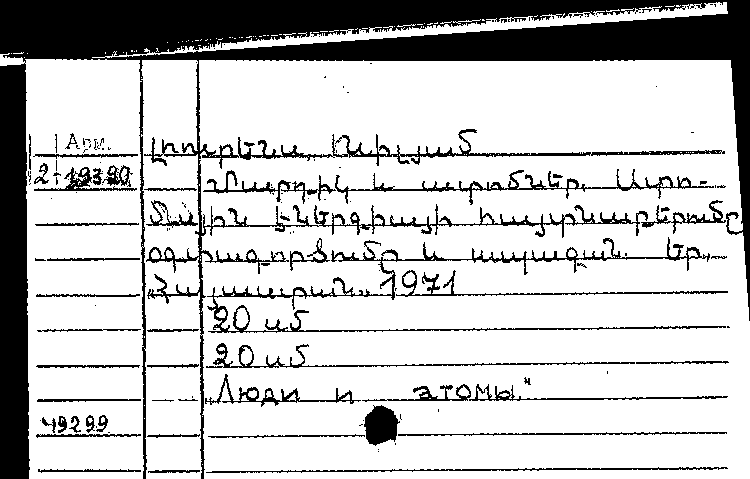 Арм.
Լոուրենս, Ուիլյամ
2-19390
Մարդիկ և ատոմներ. Ատո-
մային էներգիայի հայտնաբերումը
օգտագործումը և ապագան. Եր.,
„Հայաստան„ 1971
20 սմ
20 սմ
„Люди и атомы."
49299